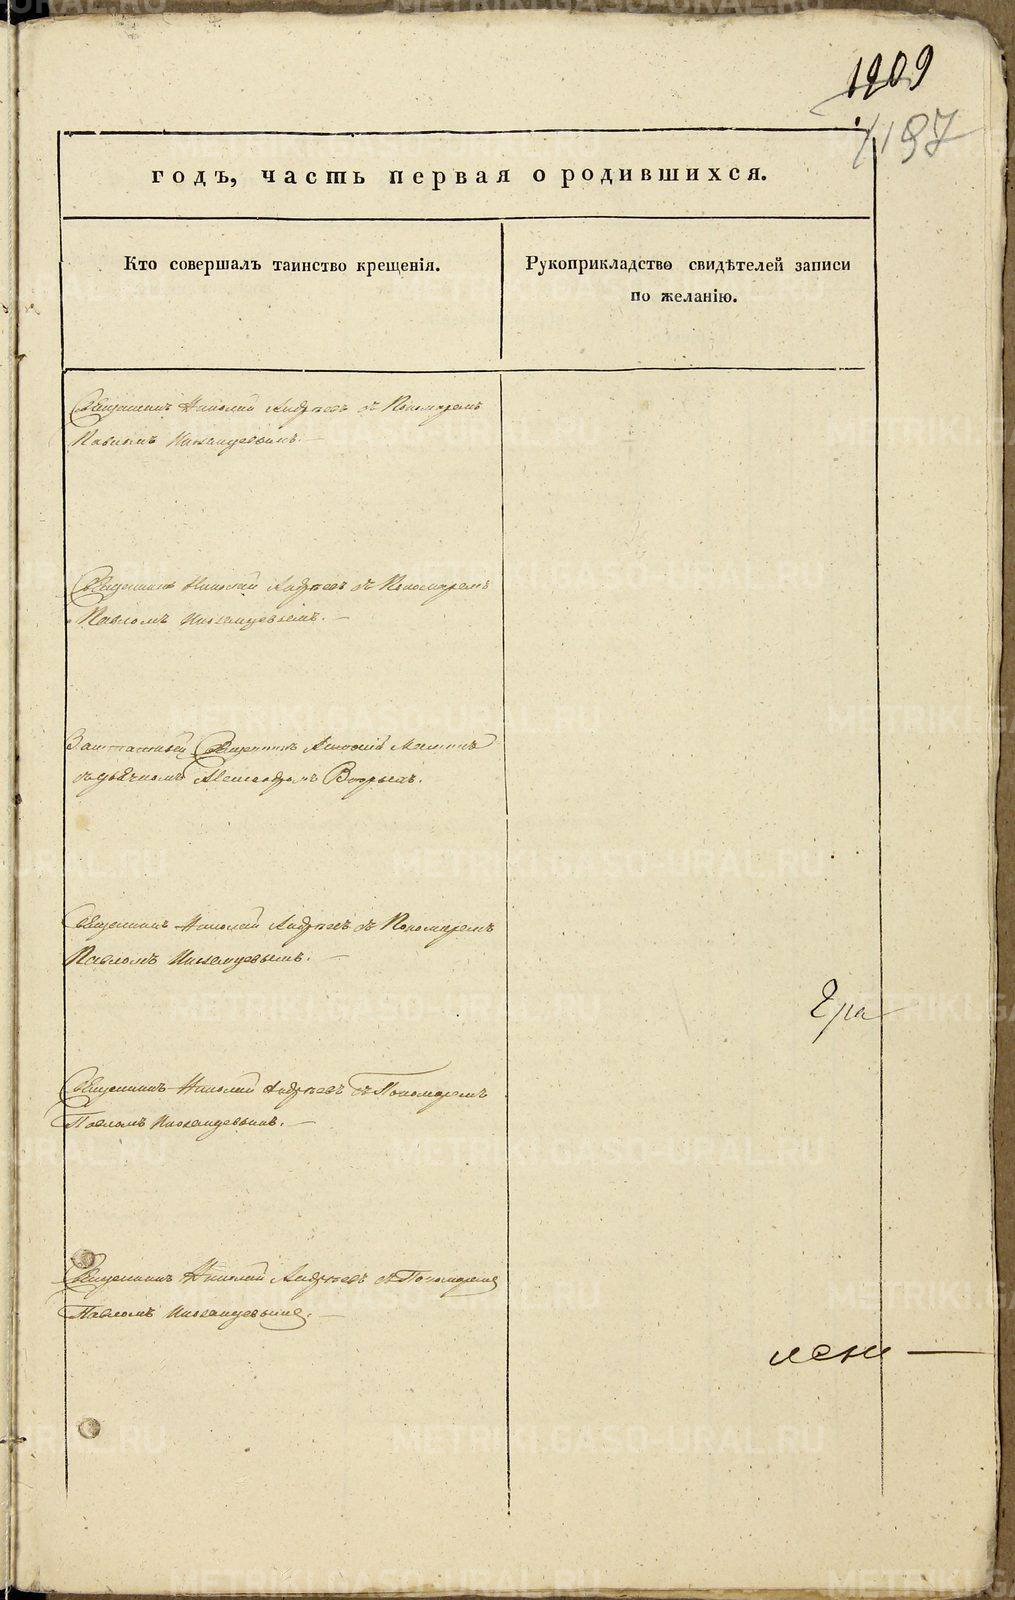 1909
1197
годъ, часть первая о родившихся.
Кто совершалъ таинство крещенія.
Рукоприкладство свидѣтелей записи
по желанію.
Священникъ Николай Андреевъ съ Пономаремъ
Павломъ Инохамцевымъ. —
Священникъ Николай Андреевъ съ Пономаремъ
Павломъ Инохамцевымъ. —
Заштатный Священникъ
съ дьячкомъ Александромъ
Священникъ Николай Андреевъ съ Пономаремъ
Павломъ Инохамцевымъ. —
Священникъ Николай Андреевъ съ Пономаремъ
Павломъ Инохамцевымъ. —
Священникъ Николай Андреевъ съ Пономаремъ
Павломъ Инохамцевымъ. —
METRIKI.GASO-URAL.RU